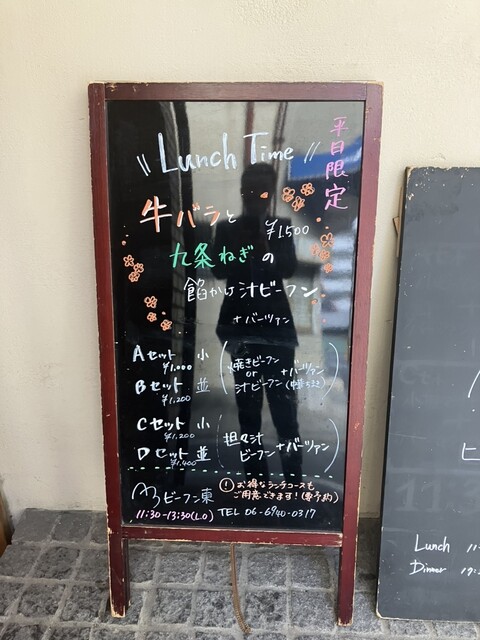 平日限定
\\ Lunch Time //
牛バラと
¥1500
九条ねぎの
餡かけ汁ビーフン
+バーツァン
Aセット 小
¥1.000
Bセット 並
¥1.200
焼きビーフン
or
汁ビーフン
+バーツァン
Cセット 小
¥1.200
Dセット 並
¥1.400
担々汁
ビーフン
+バーツァン
ビーフン東
11:30-13:30(L.O)
! お得なランチコースも
ご用意できます!(要予約)
TEL 06-6940-0317
Lunch 11
Dinner 17: